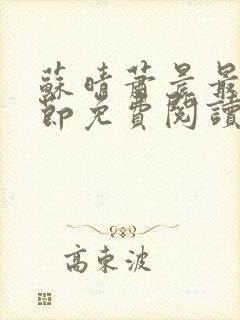 蘇晴蕭景最
節免費閱讀
高東波